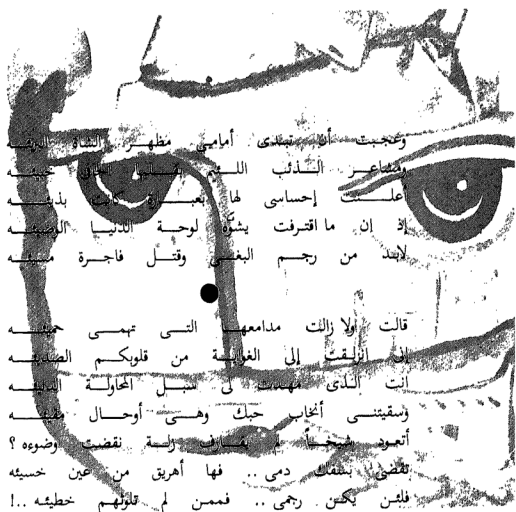 وعجبت أن تبتدى أمامى مظهر الشاة البريئه
ومشاعر الذئب اللئيم خبيئه
أعلنت إحساسى لها بعبارة كانت بذيئه
إذ إن ما اقترفت يشوّه لوحة الدنيا الوضيئه
لابد من رجم البغى وقتل فاجرة مسيئه
قالت ولا زالت مدامعها التى تهمى حميئه
إن انزلقت إلى الغواية من قلوبكم الصديئه
أنت الذى مهدت لى سبل المحاولة الدنيئه
وسقيتنى أنخاب حبك وهى أوحال
أتعود شيخا لم يقارف زلة نقضت وضوءه ؟
تقضى بسفك دمى .. فها أهريق من عين خسيئه
فلئن يكن رجمى .. فممن لم تلوثهم خطيئه ..!